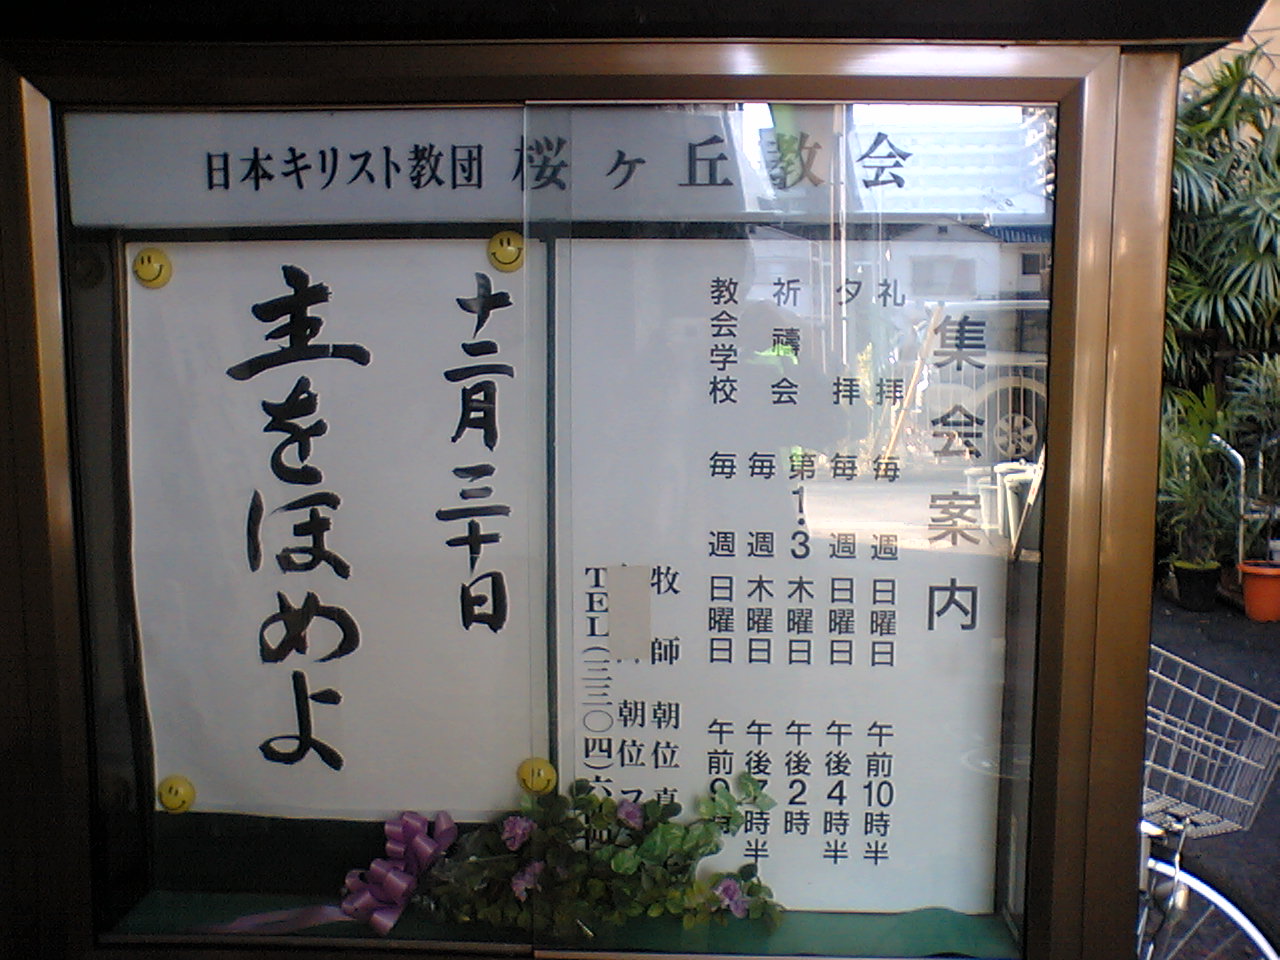 日本キリスト教団 桜ヶ丘教会
十二月三十日
主をほめよ
集会案内
礼拝 毎週日曜日 午前10時半
夕拝 毎週日曜日 午後4時半
祈禱会 第1.3木曜日 午後2時
毎週木曜日 午後7時半
教会学校 毎週日曜日 午前9時
牧師 朝位 真
朝位 ス
TEL(三三〇四)六